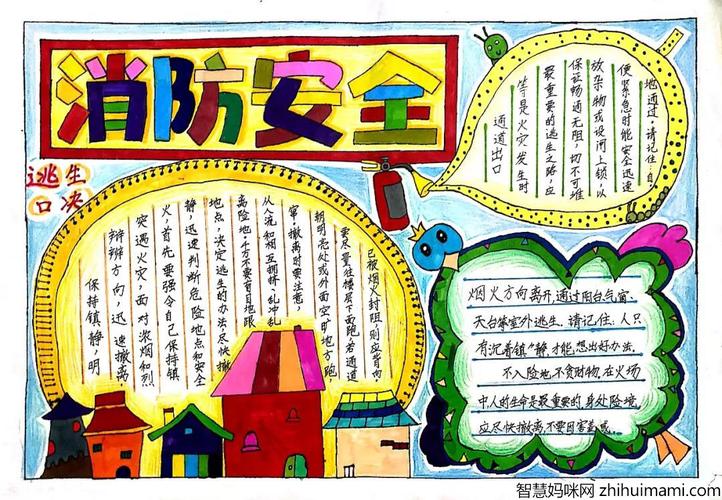 消防安全
逃生
口决
保持镇静,明
辩辩方向,迅速撤离
突遇火灾,面对浓烟和烈
火,首先要强令自己保持镇
静,迅速判断危险地点和安全
地点,决定逃生的办法,尽快撤
离险地,千万不要盲目地跟
从人流和相互拥挤,乱冲乱
窜,撤离时要注意,
朝明亮处或外面空旷地方跑,
要尽量往楼层下面跑,若通道
已被烟火封阻,则应背向
烟火方向离开,通过阳台气窗、
天台等室外逃生。请记住:人只
有沉着镇静,才能想出好办法。
不入险地,不贪财物,在火场
中人的生命是最重要的,身处险境,
应尽快撤离,不要因害羞或...
通道出口
等是火灾发生时
最重要的逃生之路,应
保证畅通无阻,切不可堆
放杂物或设闭上锁,以
便紧急时能安全迅速
地通过,请记住:自
智慧妈咪网 zhihuimami.com